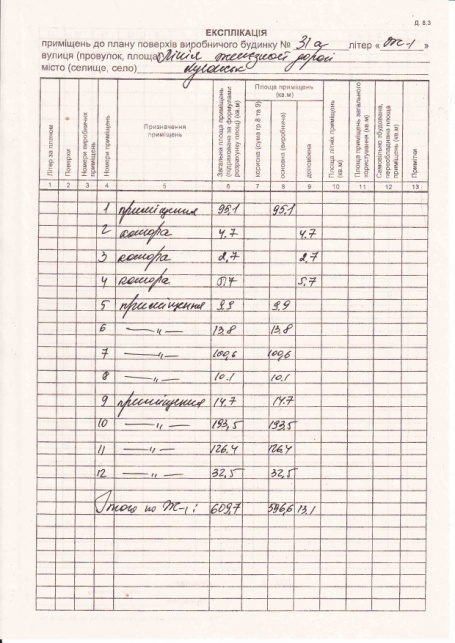 Д. 8.3
ЕКСПЛІКАЦІЯ
приміщень до плану поверхів виробничого будинку № 31а літер « Ж-1 »
вулиця (провулок, площа) Лінія железной дороги
місто (селище, село) Луганськ
Літер за планом
Поверхи
Номери виробничих приміщень
Номери приміщень
Призначення приміщень
Загальна площа приміщень (підрахована за формулами розрахунку площі) (кв.м)
Площа приміщень (кв.м)
корисна (сума гр 8 та 9)
основна (виробнича)
допоміжна
Площа літніх приміщень (кв.м)
Площа приміщень загального користування (кв.м)
Самовільно збудована, переобладнана площа приміщень (кв.м)
Примітки
1 2 3 4 5 6 7 8 9 10 11 12 13
1 приміщення 95,1 95,1
2 комора 4,7 4,7
3 комора 2,7 2,7
4 комора 5,7 5,7
5 приміщення 9,9 9,9
6 —„— 13,8 13,8
7 —„— 100,6 100,6
8 —„— 10,1 10,1
9 приміщення 14,7 14,7
10 —„— 193,5 193,5
11 —„— 126,4 126,4
12 —„— 32,5 32,5
Итого по Ж-1: 609,7 596,6 13,1